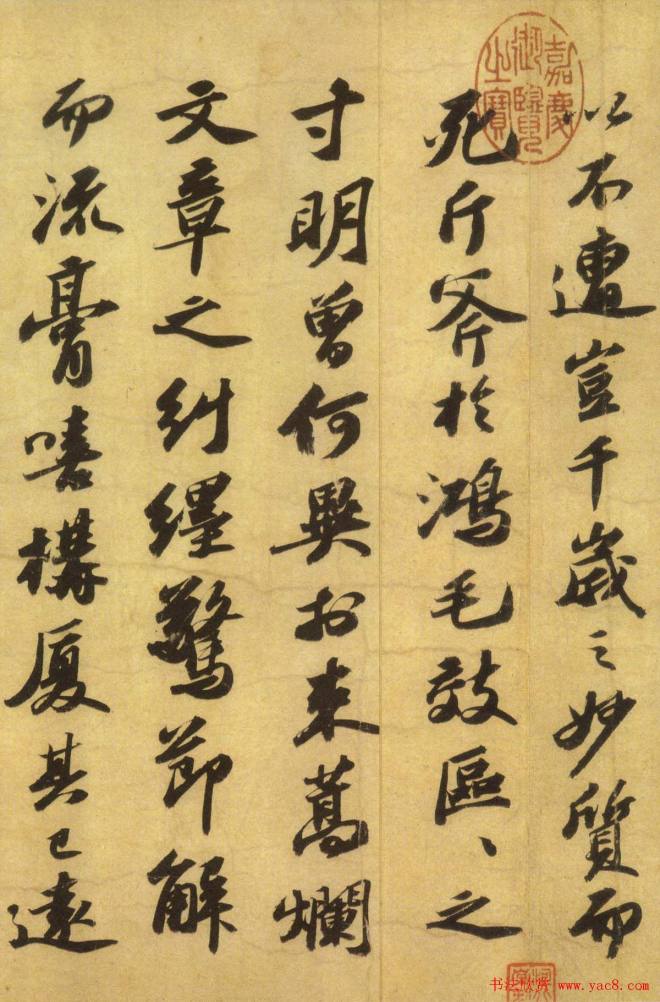 以不遭豈千歲之妙質而
死斤斧於鴻毛效區〻之
寸明曾何異於束蒿爛
文章之糾纏驚節解
而流膏嘻構厦其已遠
嘉慶
御覽
之寶
书法欣赏 www.yac8.com